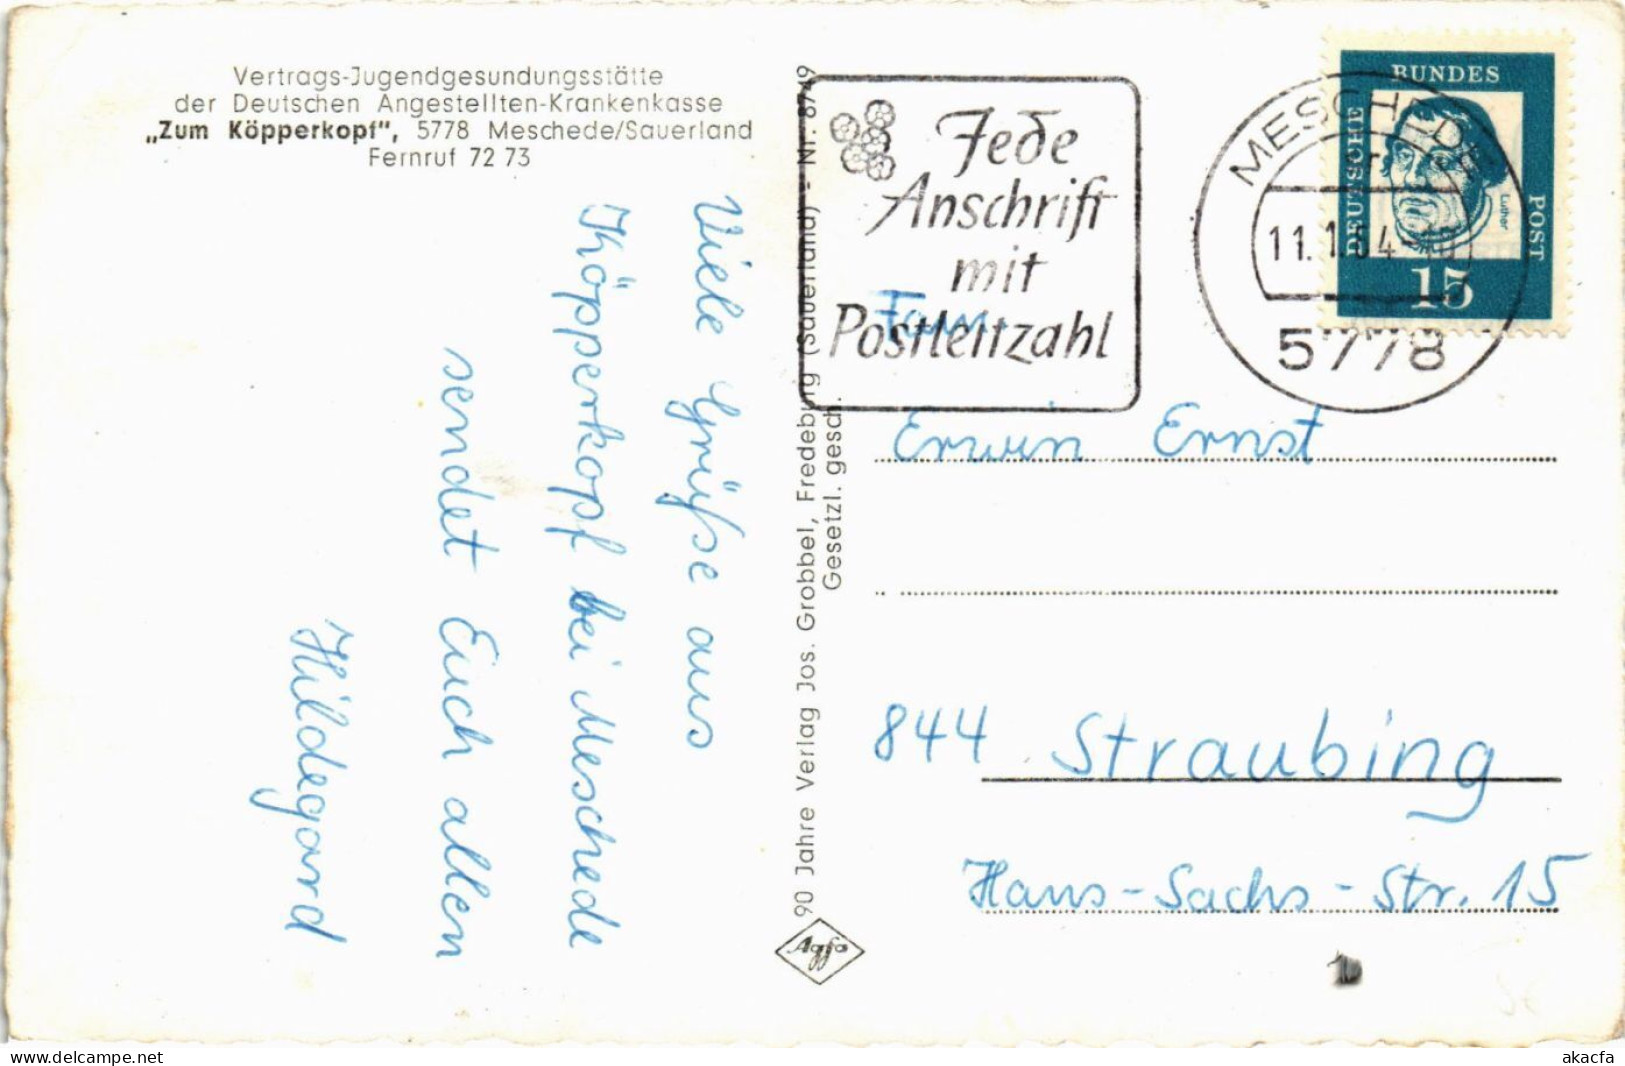 Vertrags-Jugendgesundungsstätte
der Deutschen Angestellten-Krankenkasse
„Zum Köpperkopf", 5778 Meschede/Sauerland
Fernruf 72 73
Viele Grüße aus
Köpperkopf bei Meschede
sendet Euch allen
Hildegard
90 Jahre Verlag Jos. Grobbel, Fredeburg (Sauerland) - Nr. 8749
Gesetzl. gesch.
Agfa
Jede
Anschrift
mit
Postleitzahl
MESCHEDE
5778
DEUTSCHE
BUNDES
POST
Luther
15
Fam.
Erwin Ernst
844 Straubing
Hans-Sachs-Str. 15
akacfa
www.delcampe.net